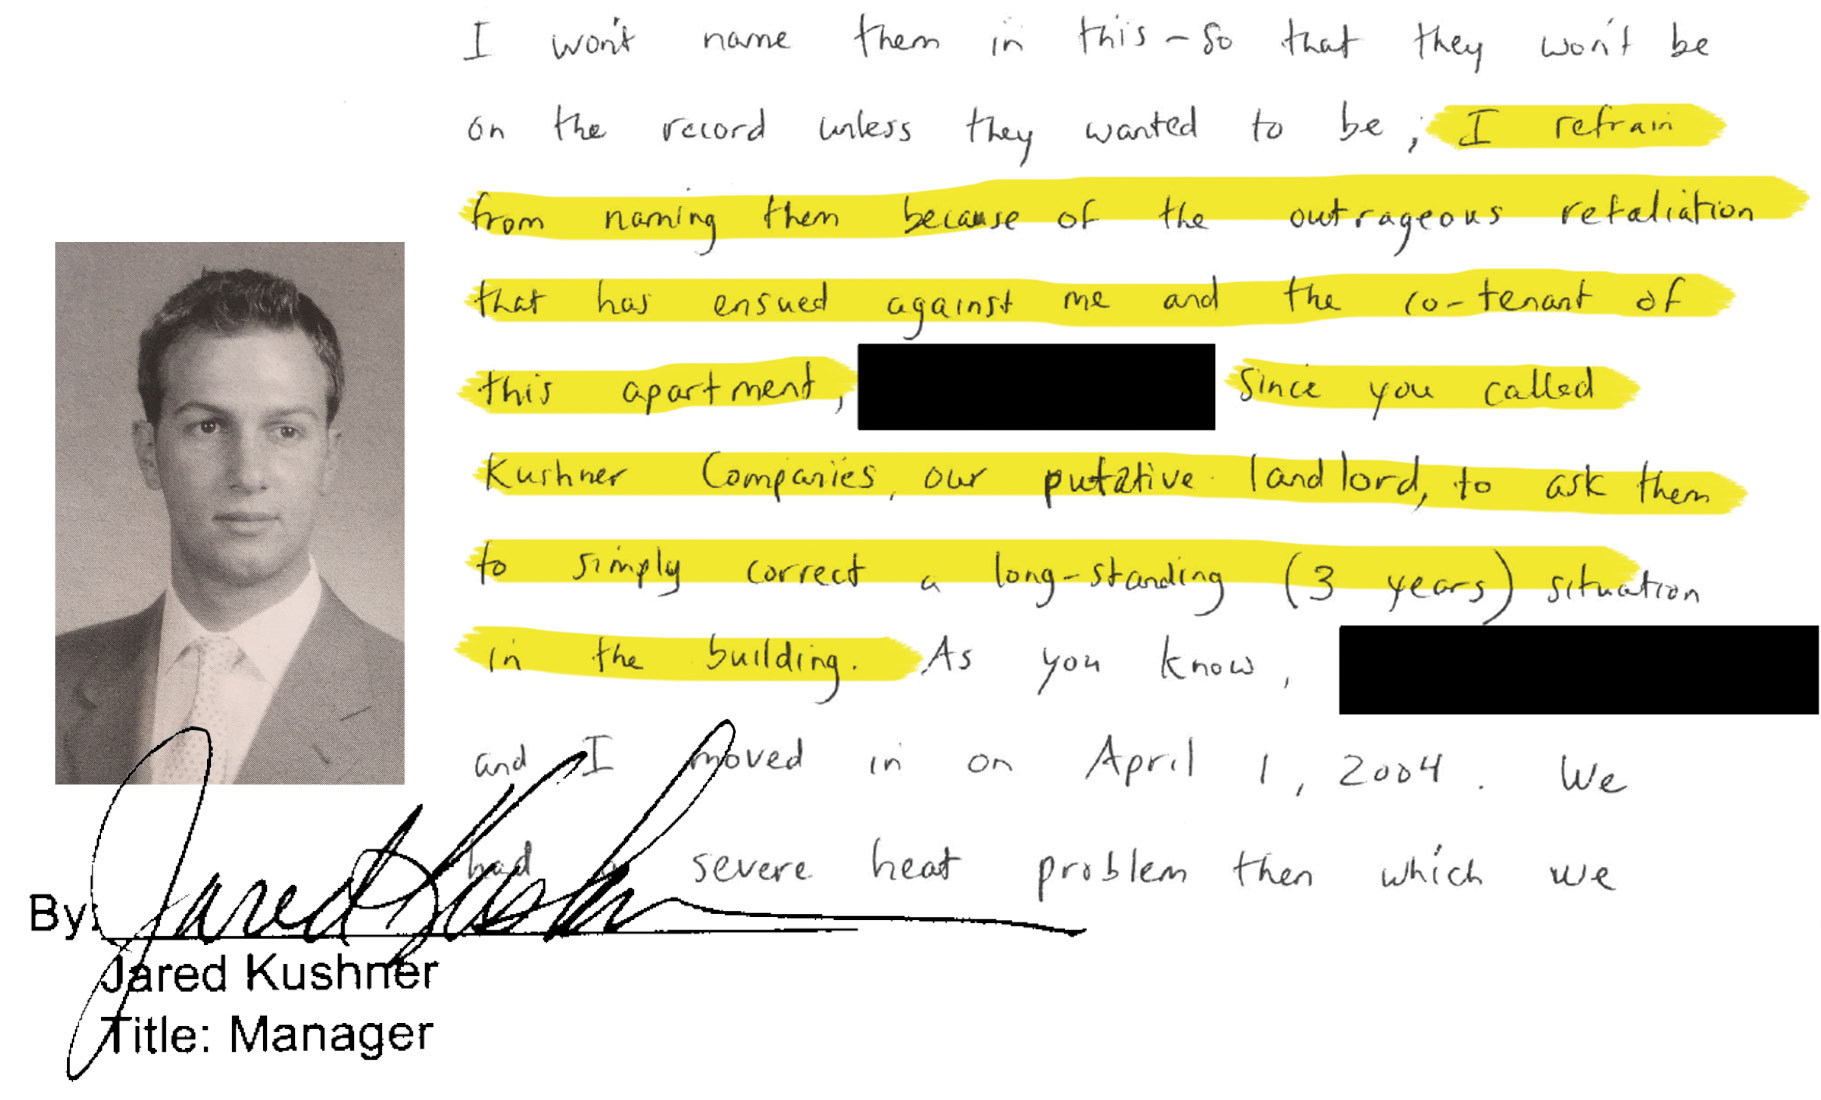 I won't name them in this - so that they won't be
on the record unless they wanted to be; I refrain
from naming them because of the outrageous retaliation
that has ensued against me and the co-tenant of
this apartment, since you called
Kushner Companies, our putative landlord, to ask them
to simply correct a long-standing (3 years) situation
in the building. As you know,
and I moved in on April 1, 2004. We
had a severe heat problem then which we
By: Jared Kushner
Jared Kushner
Title: Manager